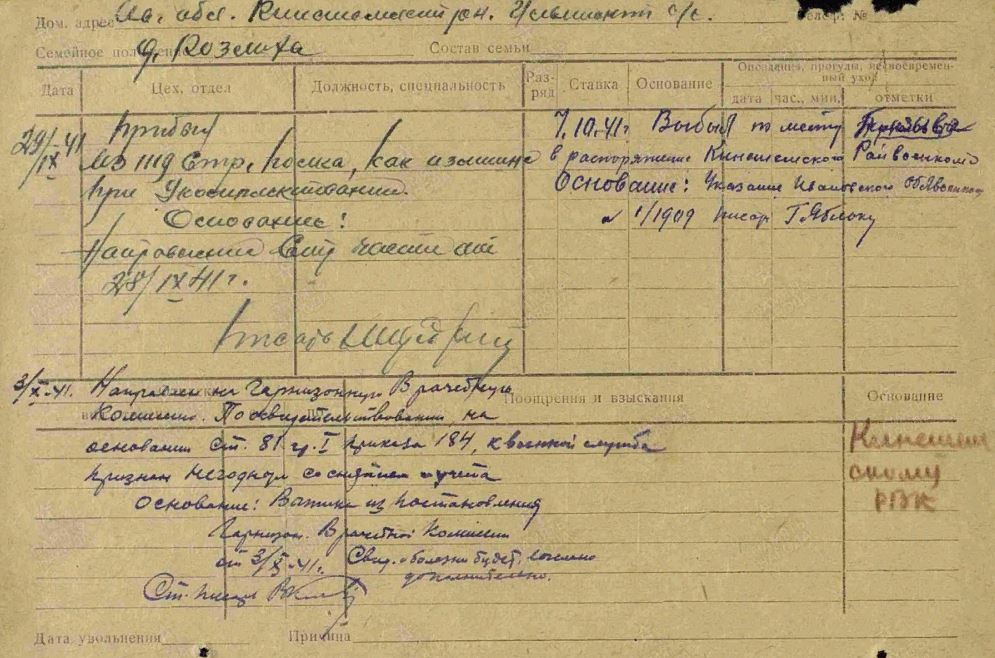 Дом. адрес Ив. обл. Кинешемский рон. с/с. Телеф. №
Семейное положение д. Козлиха Состав семьи
Дата
Цех, отдел
Должность, специальность
Разряд
Ставка
Основание
Опоздания, прогулы, несвоевременный уход
дата
час., мин.
отметки
29/IX 41 Прибыл
из 1119 Стр. полка, как излишне
при Укомплектовании.
Основание:
Направление Стр части от
28/IX 41 г.
писарь
7.10.41г Выбыл по месту Призыва
в распоряжение Кинешемского Райвоенкомо
Основание: Указание Ивановского облвоенком
№ 1/1909 писарь Г. Яблоку
Поощрения и взыскания
Основание
3/X-41. Направлен на Гарнизонную Врачебную
комиссию. По освидетельствовании на
основании Ст. 81 гр. I приказа 184, к военной службе
признан негодным со снятием с учета
Основание: Выписка из постановления
Гарнизон. Врачебной Комиссии
от 3/X-41г. Свид. о болезни будет выслано
дополнительно.
Ст. писарь
Кинешем
скому
РВК
Дата увольнения
Причина